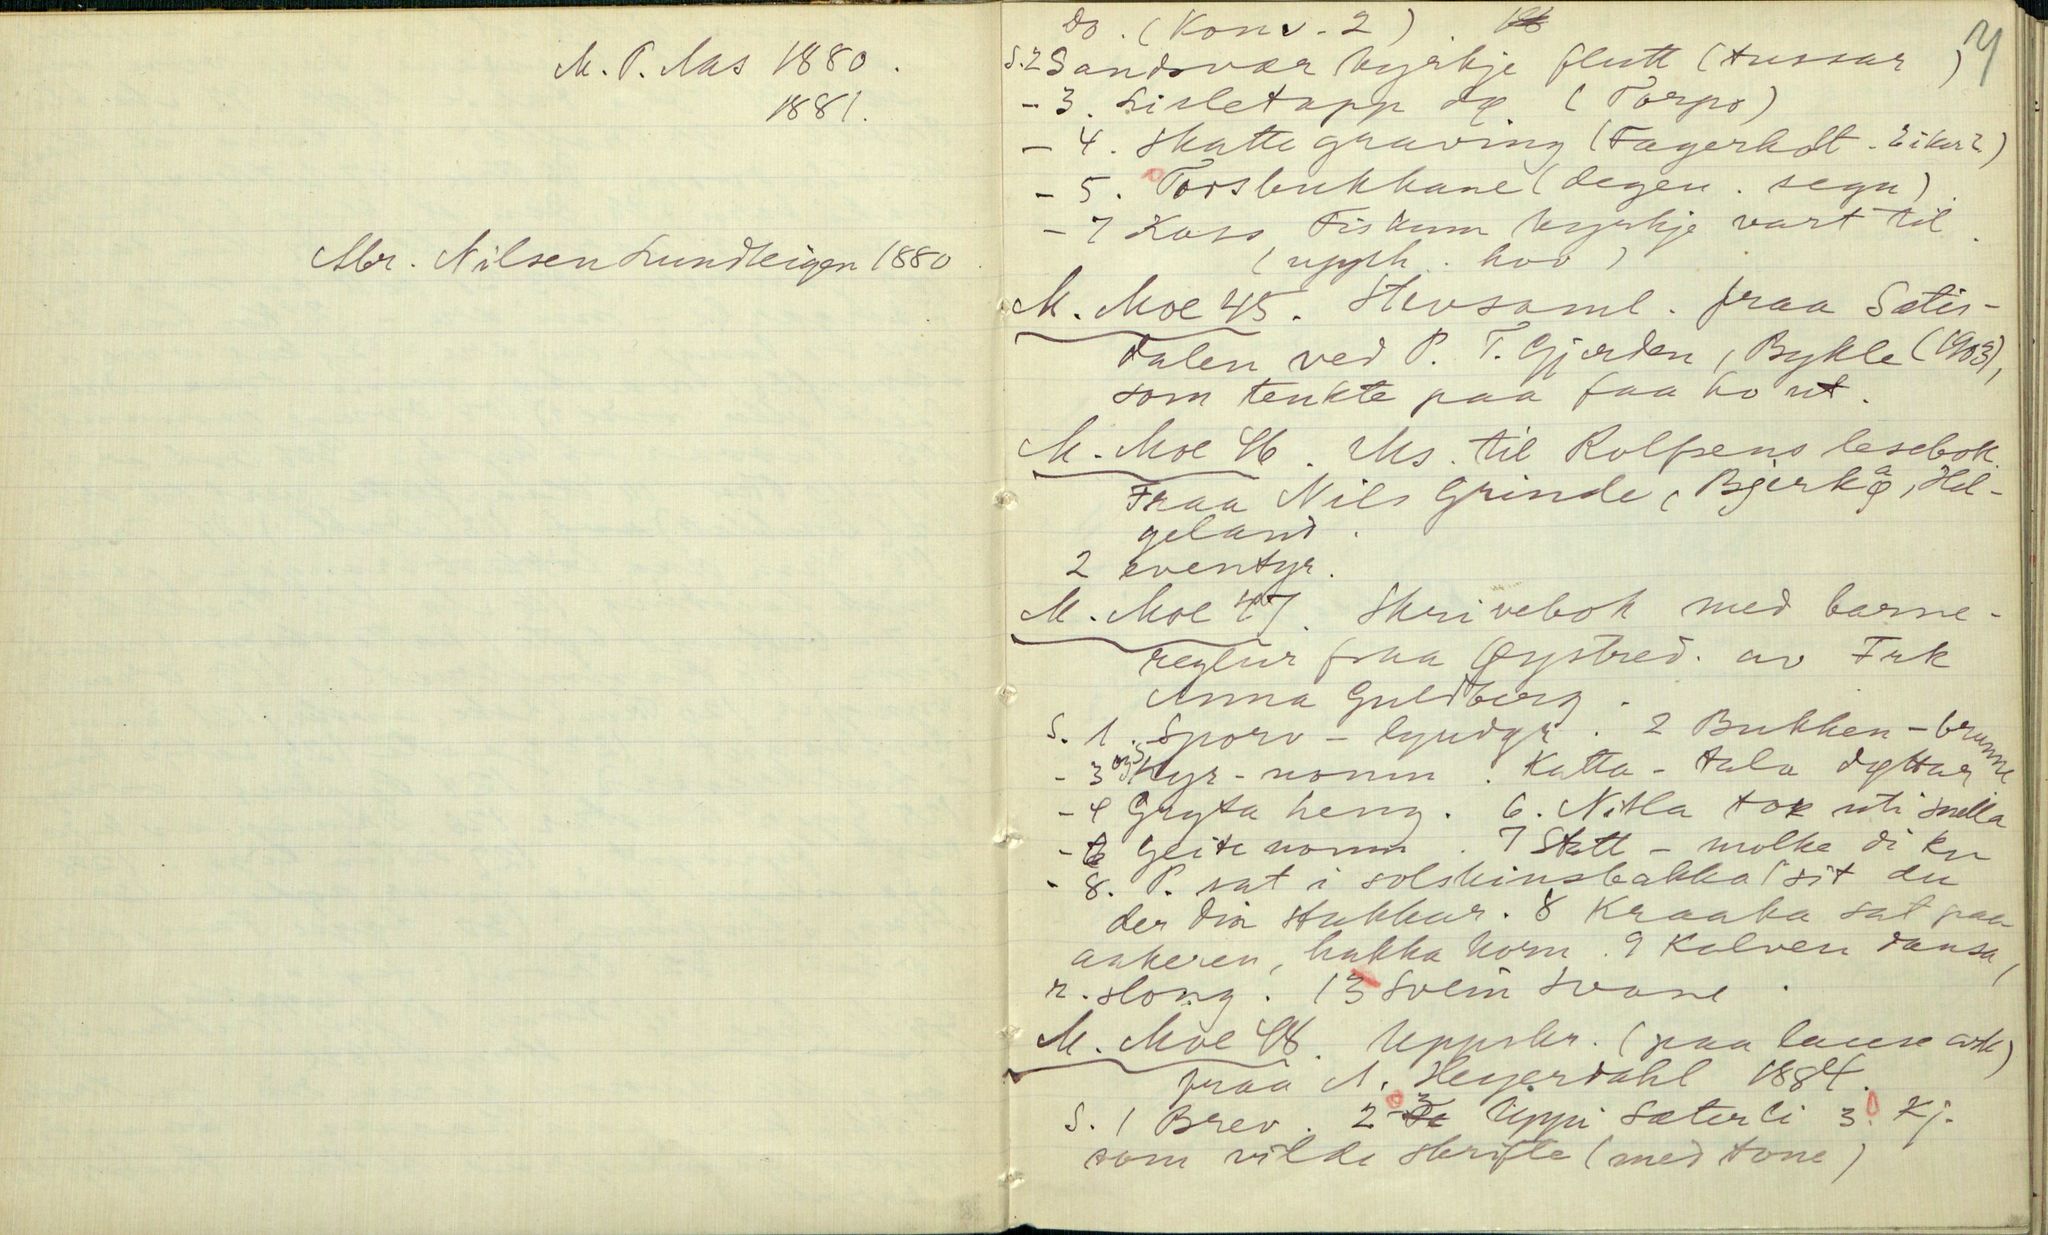 M. P. Aas 1880.
1881.
Abr. Nilsen Lundteigen 1880.
Do. (Konv. 2)
S. 2 Sandsvær kyrkje flutt (tussar)
- 3. Lisletapp dø (Torpo)
- 4. Skattegraving (Fagerholt. Eiker?)
- 5. Torsbukkane (degen. segn).
- 7 Koss Fiskum kyrkje vart til.
(upph. hov)
M. Moe 45. Stevsaml. fraa Sætis-
dalen ved P. T. Gjerden, Bykle (1903),
som tenkte paa faa ho ut.
M. Moe 46. Ms. til Rolfsens lesebok
Fraa Nils Grinde, Bjerka, Hel-
geland.
2 eventyr.
M. Moe 47. Skrivebok med barne-
reglur fraa Øystred. av Frk
Anna Guldberg.
S. 1. Sporv - lyndgr. 2 Bukken - brumme
- 3 og 5 Kyr-nomn. Katta - tala døttar
- 4 Gryta heng. 6. Nikla tok uti snella
- 6 Geitenomn. 7 Statt - molke di ku
- 8. P. sat i solskinsbakka "sit du
der din stukkar. 8 Kraaka sat paa
aakeren, hakka korn. 9 Kalven dansa,
r. slong. 13 Svein Svane.
M. Moe 48. Uppskr. (paa lause ark)
fraa A. Heyerdahl 1884.
S. 1 Brev. 2-3 Uppi Sæterli 3. Kj.
som vilde skrifte (med tone)